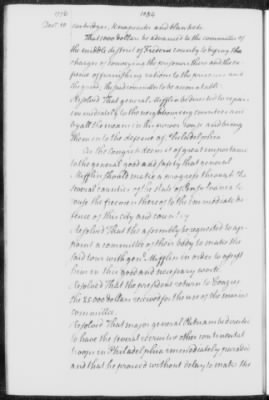 1776 1034
Dec. 10 cartridges, knapsacks and blankets.
That 1000 dollars be advanced to the committee of
the middle district of Frederic county to defray the
charges of conveying the prisoners there and the ex-
pence of furnishing rations to the prisoners and
the guard; the said committee to be accountable.
Resolved That general Mifflin be directed to repair
immediately to the neighbouring counties and
by all the means in his power rouse and bring
them in to the defence of Philadelphia
As the Congress deem it of great importance
to the general good and safety that general
Mifflin should make a progress through the
several counties of the state of Pensylvania to
rouse the freemen thereof to the immediate de-
fence of this city and country
Resolved That the assembly be requested to ap-
point a committee of their body to make the
said tour with genl. Mifflin in order to assist
him in this good and necessary work.
Resolved That the president return to Congress
the 25000 dollars received for the use of the marine
committee.
Resolved That major general Putnam be directed
to have the several recruits & other continental
troops in Philadelphia immediately paraded
and that he proceed without delay to make the